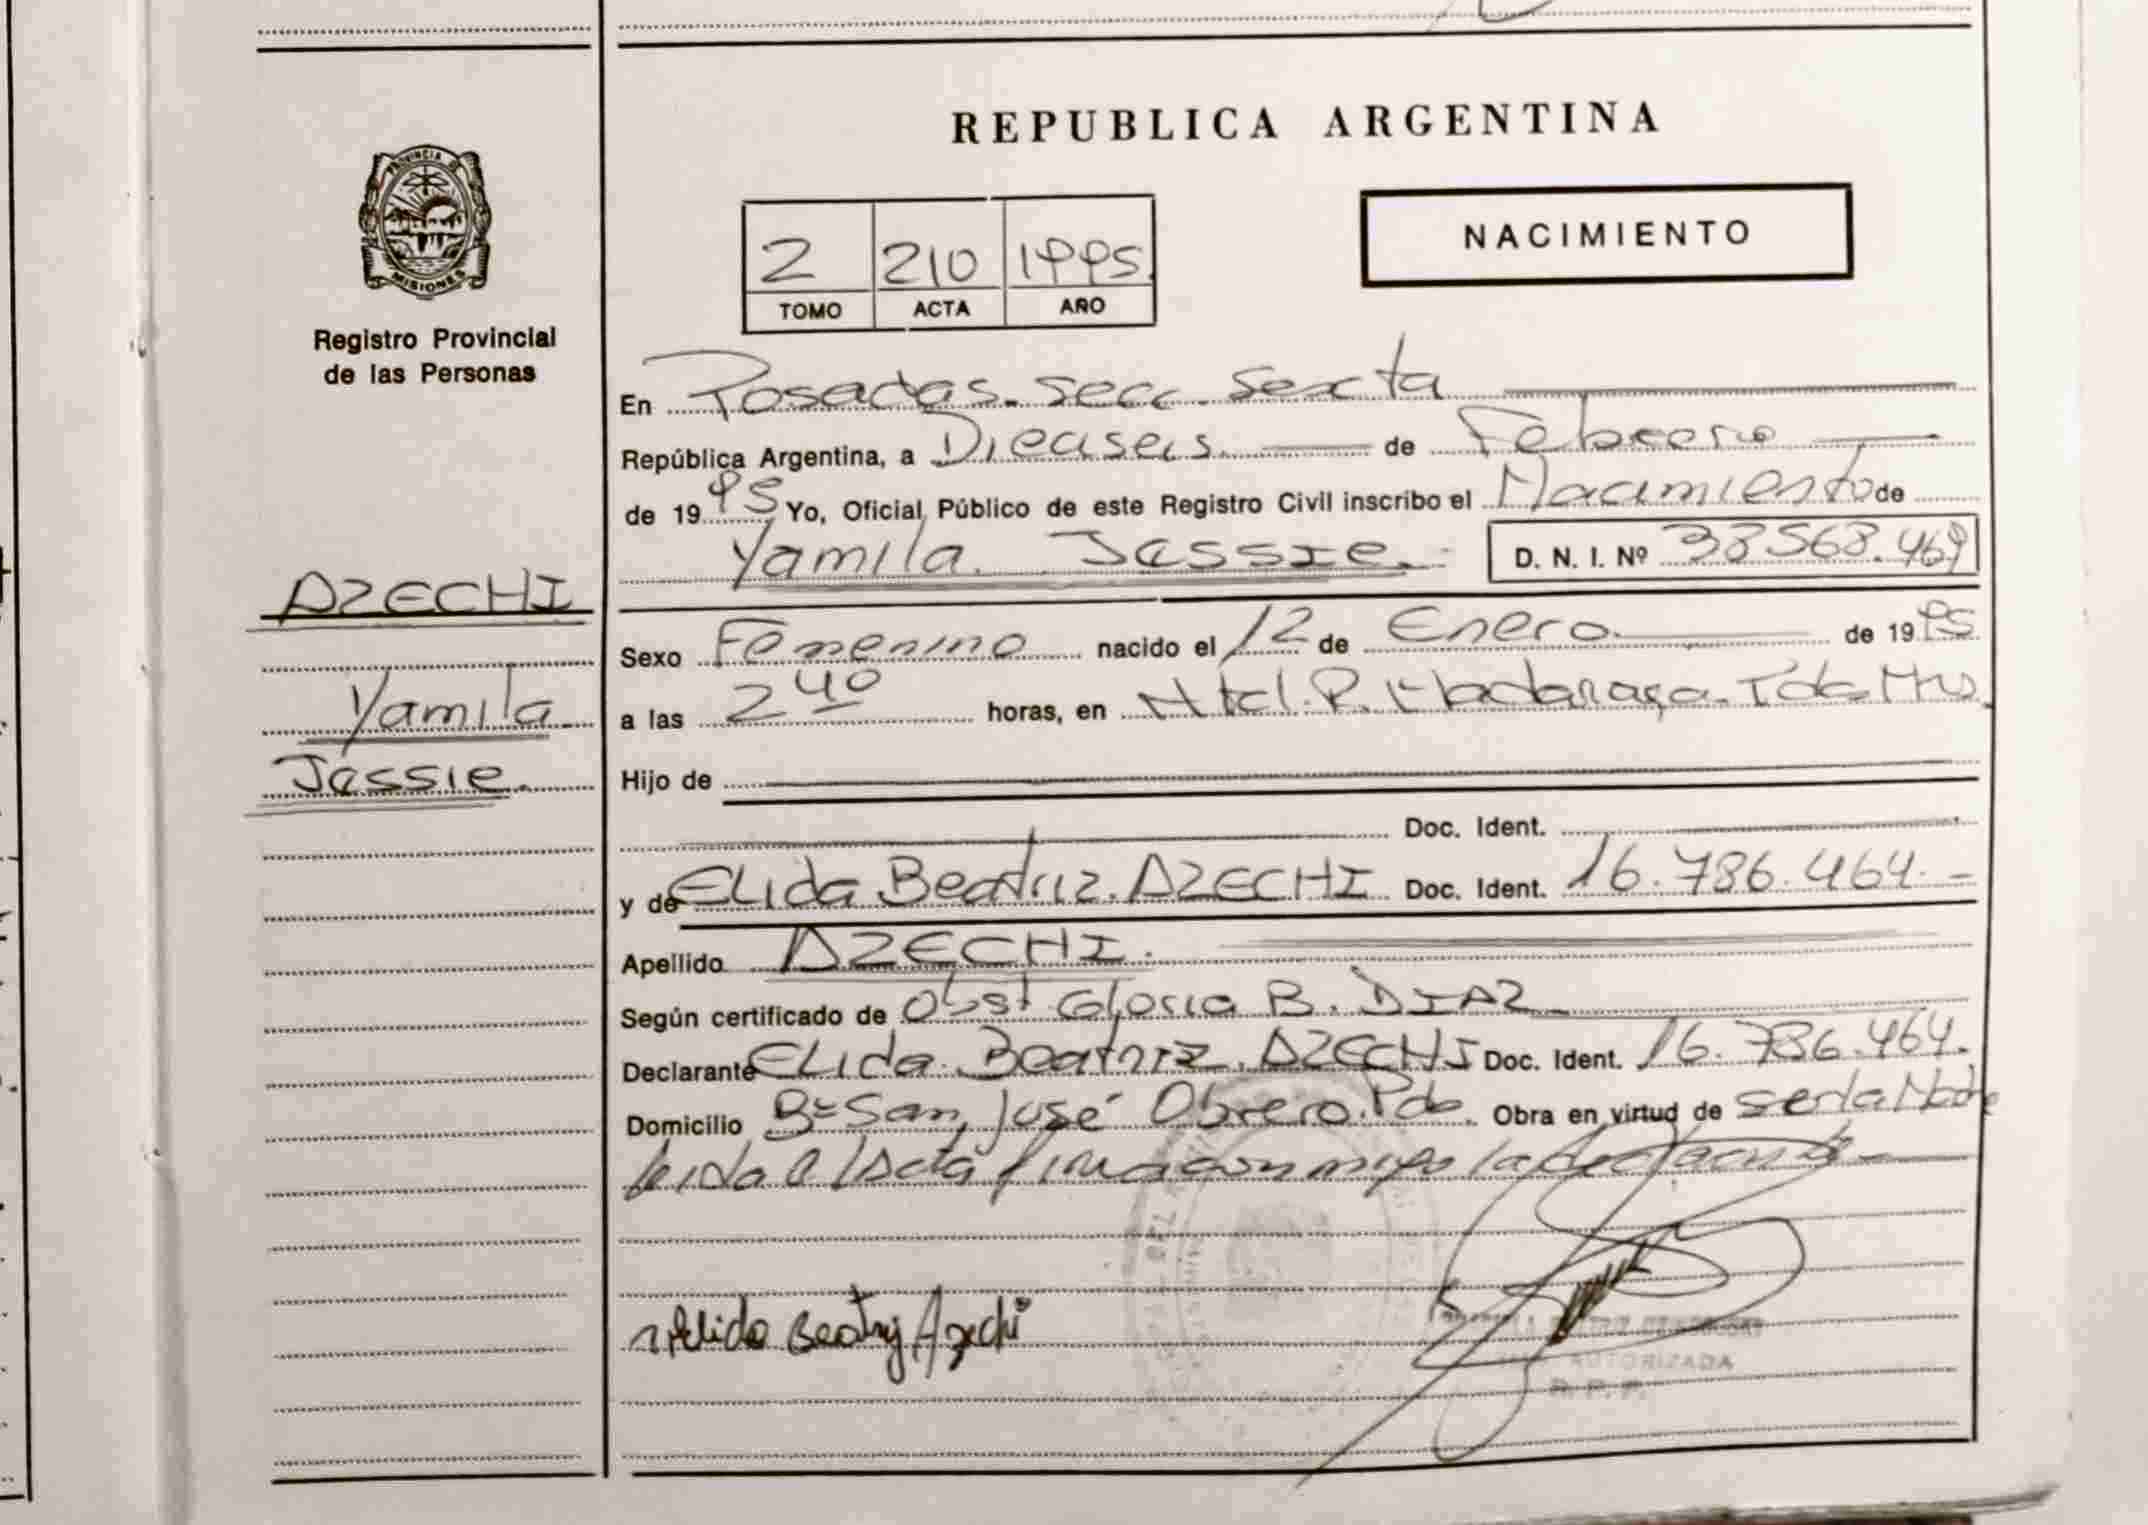 PROVINCIA DE
MISIONES
Registro Provincial
de las Personas
AZECHI
Yamila
Jessie.
REPUBLICA ARGENTINA
2 210 1995
TOMO ACTA AÑO
NACIMIENTO
En Posadas. secc. sexta
República Argentina, a Dieciseis de Febrero
de 1995 Yo, Oficial Público de este Registro Civil inscribo el Nacimiento de
Yamila Jessie. D. N. I. Nº 38568.469
Sexo Femenino nacido el 12 de Enero de 1995
a las 2 40 horas, en R. Madariaga
Hijo de
Doc. Ident.
y de ELida Beatriz. AZECHI Doc. Ident. 16.786.464.-
Apellido AZECHI.
Según certificado de Obst Gloria B. DIAZ
Declarante ELida Beatriz. AZECHI Doc. Ident. 16.786.464.
Domicilio Bº San José Obrero. Pdas. Obra en virtud de ser la Madre
leida el Acta firma conmigo la declarante-
Elida Beatriz Azechi
AUTORIZADA
R. P. P.